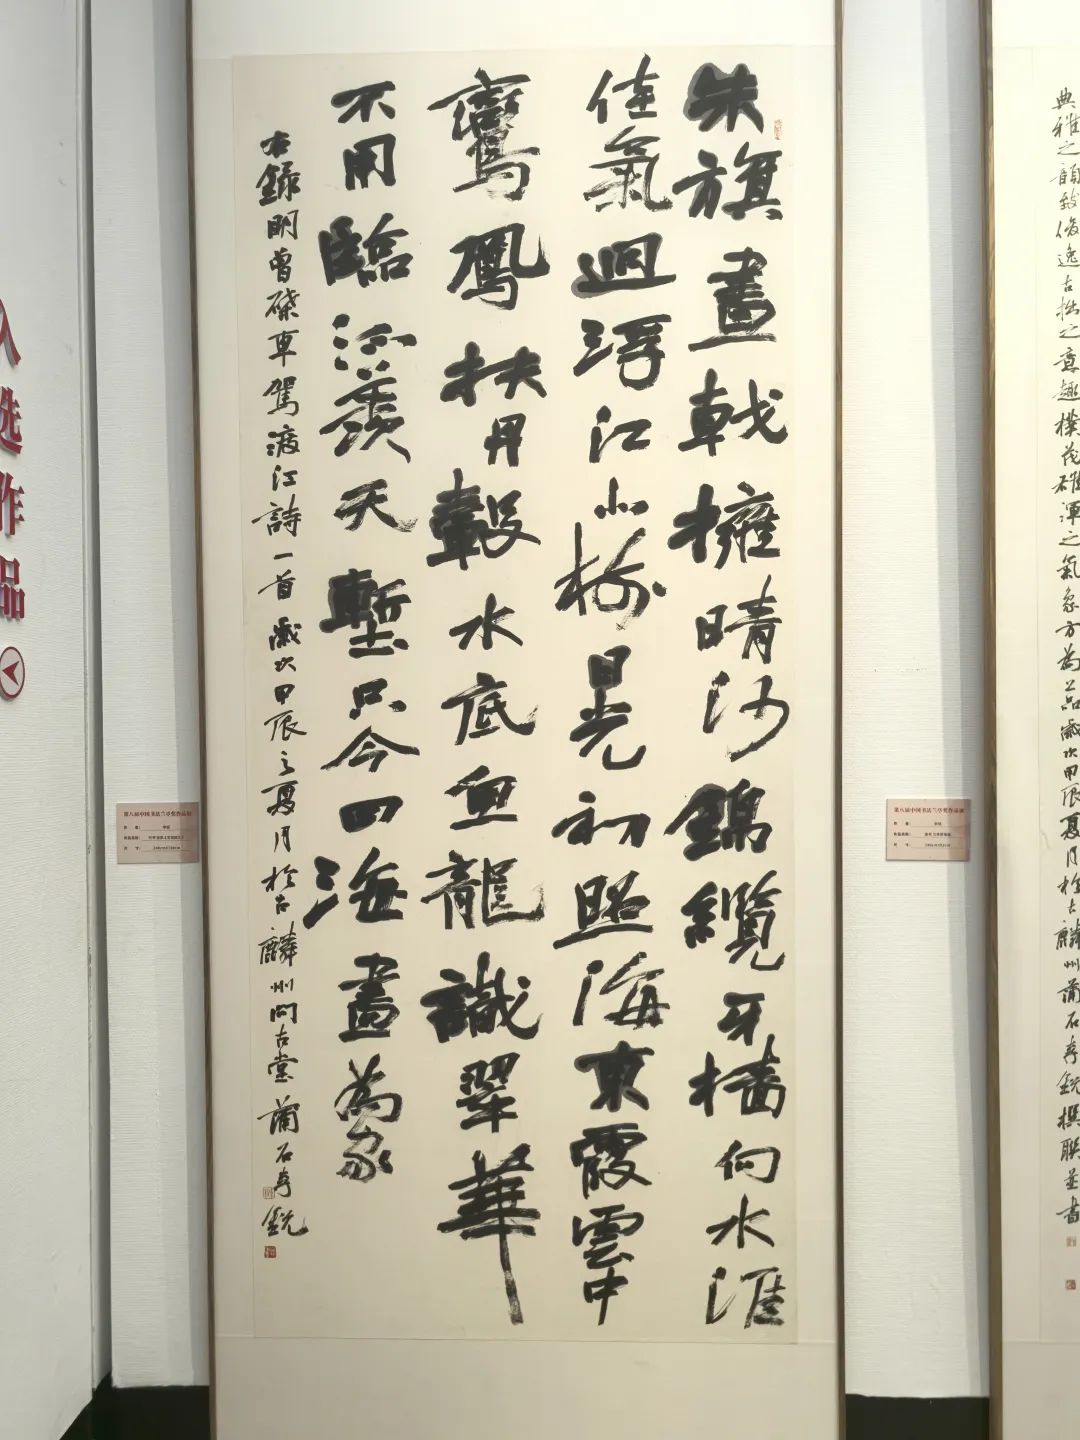 朱旗畫戟擁晴沙錦纜牙檣向水涯
佳氣迥浮江小樹日光初照海東霞雲中
鸞鳳扶丹轂水底魚龍識翠華
不用臨流羨天塹只今四海盡為家
右錄明曾棨車駕渡江詩一首歲次甲辰之夏月於古麟州問古堂蒲石李銳
典雅之韻致俊逸古拙之意趣樸茂雄渾之氣象方為上品歲次甲辰夏月於古麟州蒲石李銳撰聯並書
入选作品
第八届中国书法兰亭奖作品展
第八届中国书法兰亭奖作品展